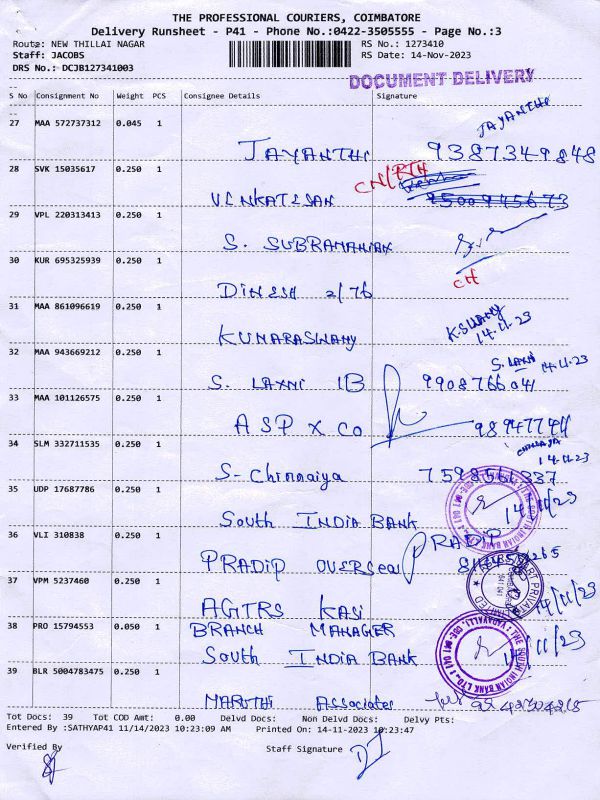 THE PROFESSIONAL COURIERS, COIMBATORE
Delivery Runsheet - P41 - Phone No.:0422-3505555 - Page No.:3
Route: NEW THILLAI NAGAR RS No.: 1273410
Staff: JACOBS RS Date: 14-Nov-2023
DRS No.: DCJB127341003
DOCUMENT DELIVERY
S No Consignment No Weight PCS Consignee Details Signature
27 MAA 572737312 0.045 1
JAYANTHI
JAYANTHI 9387349848
28 SVK 15035617 0.250 1
VENKATESAN
29 VPL 220313413 0.250 1
S. SUBRAMANIAN
30 KUR 695325939 0.250 1
CH
DINESH 2/76
31 MAA 861096619 0.250 1
K.SWAMY
14-11-23
KUMARASWAMY
32 MAA 943669212 0.250 1
S. LAXMI 14-11-23
S. LAXMI 1B 9908766041
33 MAA 101126575 0.250 1
ASP x CO
34 SLM 332711535 0.250 1
14-11-23
S-Chinnaiya
35 UDP 17687786 0.250 1
14/11/23
SOUTH INDIA BANK
36 VLI 310838 0.250 1
PRADIP
PRADIP OVERSEA
37 VPM 5237460 0.250 1
14/11/23
AGTRS KASI
38 PRO 15794553 0.050 1
BRANCH MANAGER
SOUTH INDIA BANK 14/11/23
39 BLR 5004783475 0.250 1
MARUTHI Associates
Tot Docs: 39 Tot COD Amt: 0.00 Delvd Docs: Non Delvd Docs: Delvy Pts:
Entered By :SATHYAP41 11/14/2023 10:23:09 AM Printed On: 14-11-2023 10:23:47
Verified By Staff Signature